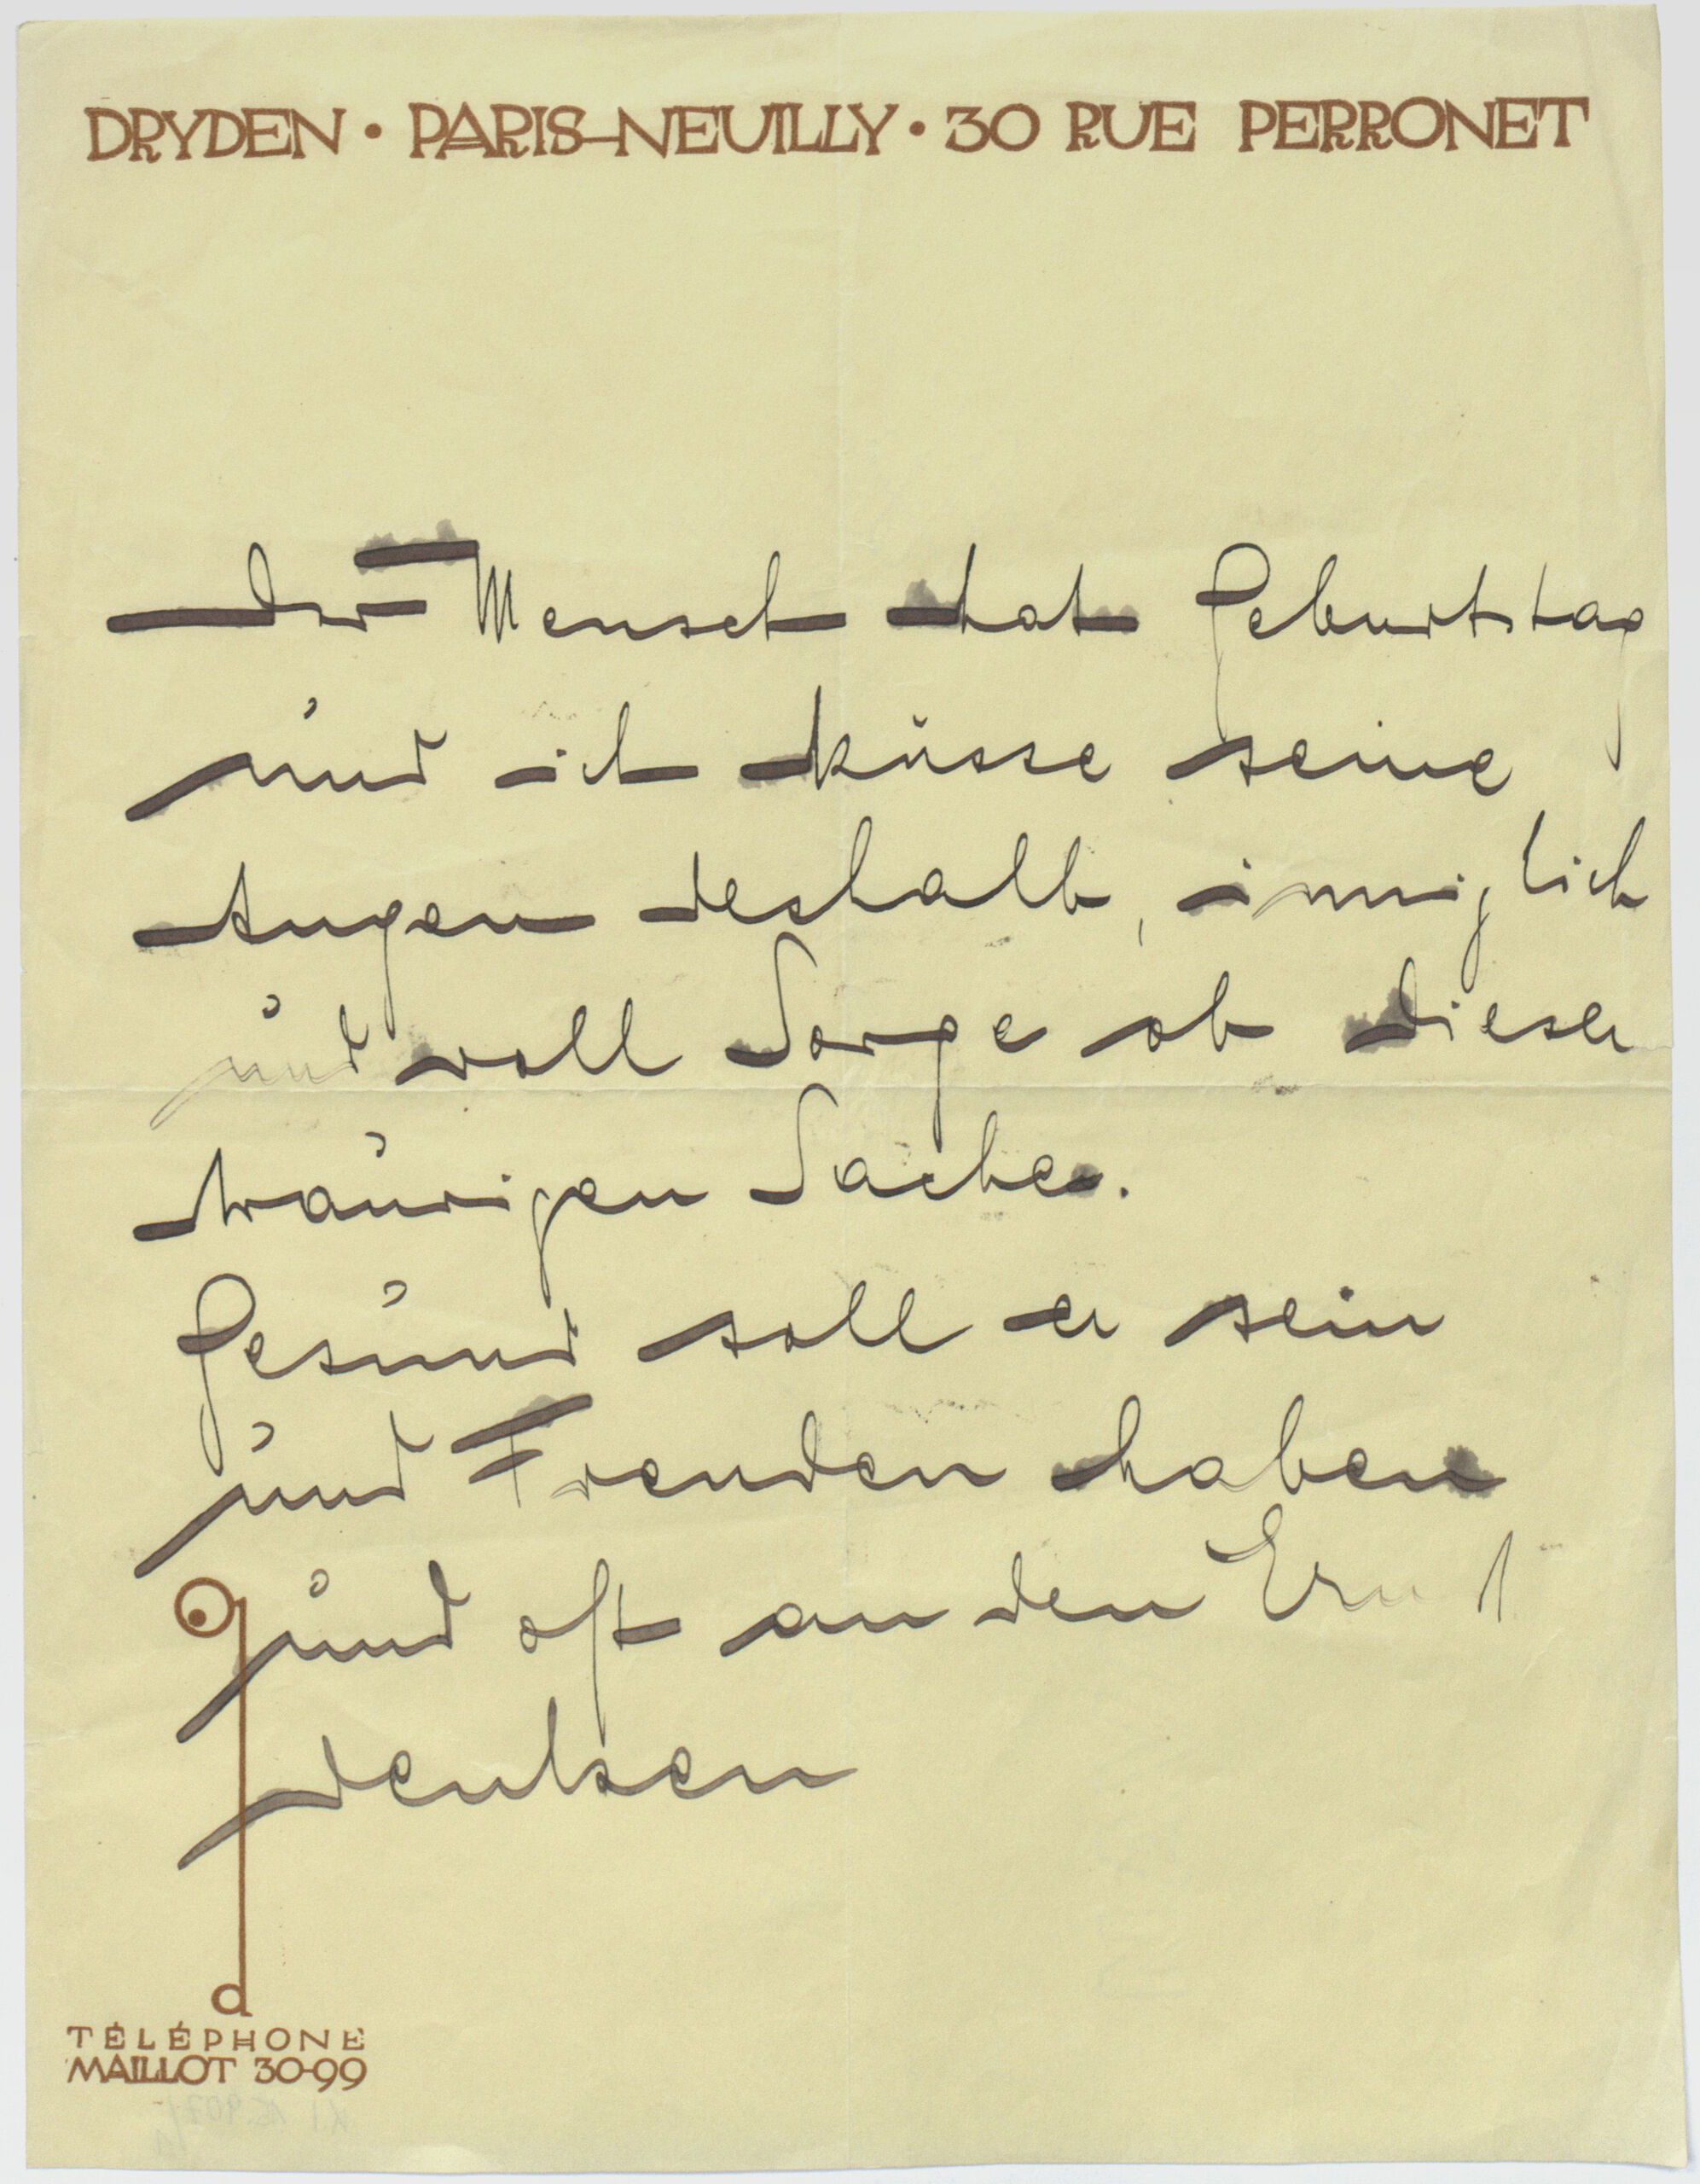 DRYDEN • PARIS–NEUILLY • 30 RUE PERRONET
der Mensch hat Geburtstag
und ich küsse seine
Augen deshalb, inniglich
und voll Sorge ob dieser
traurigen Sache.
Gesund soll er sein
und Freuden haben
und oft an den Ernst
denken
d
TÉLÉPHONE
MAILLOT 30-99